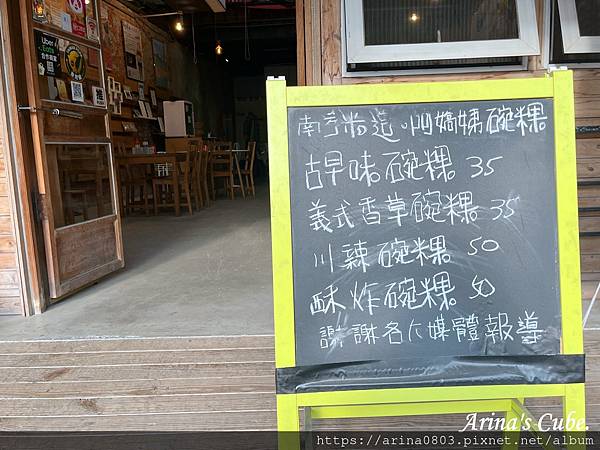 南亨米造．阿嬌姨碗粿
古早味碗粿 35
義式香草碗粿 35
川辣碗粿 50
酥炸碗粿 50
謝謝各大媒體報導
Uber
Eats
Arina's Cube.
https://arina0803.pixnet.net/album